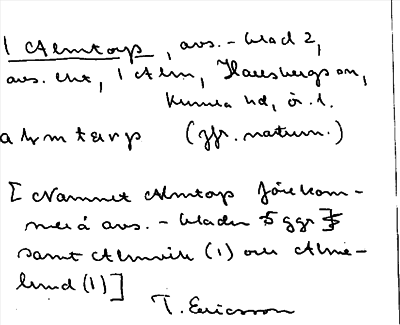 1 Almtorp, avs.-blad 2,
avs. ent, 1 Alm, Haresbergs on,
Kumla hd, ö. l.
almtårp (jfr. naturn.)
[Namnet Almtorp förekom-
mer å avs.-bladen 5 ggr]
samt Almvik (1) och Alme-
lund (1)]
T. Ericsson